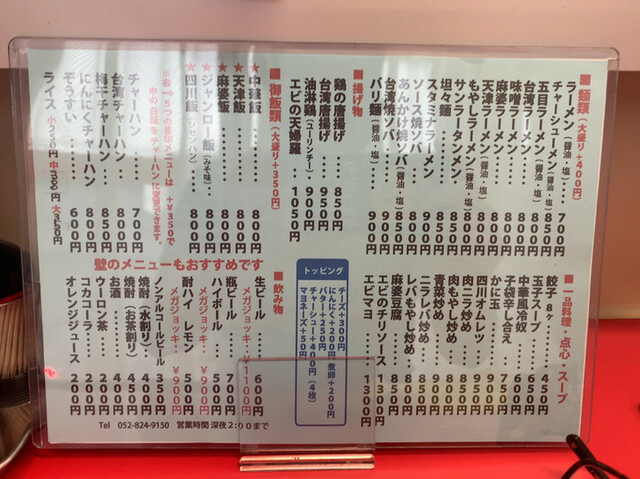 ■麺類(大盛り+400円)
ラーメン(醤油・塩)‥ 700円
チャーシューメン(醤油・塩)
五目ラーメン(醤油・塩)‥ 850円
台湾ラーメン‥‥ 800円
味噌ラーメン‥‥ 800円
麻婆ラーメン‥‥ 800円
天津ラーメン(醤油・塩)
もやしラーメン(醤油・塩)
サンラータンメン‥
坦々麺‥‥
スタミナラーメン
ソース焼ソバ‥
あんかけ焼ソバ(醤油・塩)
台湾焼ソバ‥‥ 900円
バリ麺(醤油・塩)‥ 900円
■揚げ物
鶏の唐揚げ‥‥ 850円
台湾唐揚げ‥‥ 900円
油淋鶏(ユーリンチー) 950円
エビの天婦羅‥ 1050円
■御飯類(大盛り+350円)
★中華飯‥‥ 800円
★天津飯‥‥ 800円
★麻婆飯‥‥ 800円
★ジャンロー飯(みそ味)‥ 800円
★四川飯 800円
※右→5つの星印メニューは+¥350で
中の白飯をチャーハンに変更できます。
チャーハン‥‥ 700円
台湾チャーハン‥ 800円
梅干チャーハン‥ 850円
にんにくチャーハン 800円
ぞうすい‥‥ 600円
ライス 小250円 中300円 大350円
■一品料理・点心・スープ
餃子 8ヶ‥‥ 450円
玉子スープ‥‥ 450円
子袋辛し合え‥ 650円
中華風冷奴‥‥ 650円
かに玉‥‥
四川オムレツ‥
肉ニラ炒め‥
肉もやし炒め‥
青菜炒め‥‥
ニラレバ炒め‥
レバもやし炒め‥ 850円
麻婆豆腐‥‥ 850円
エビのチリソース 1300円
エビマヨ‥‥ 1300円
トッピング
チーズ+300円
にんにく+200円 煮卵+200円
バター+250円
チャーシュー+400円(4枚)
マヨネーズ+50円
壁のメニューもおすすめです
■飲み物
生ビール‥‥ 600円
メガジョッキ‥ ¥1100円
瓶ビール‥‥ 700円
ハイボール‥ 500円
メガジョッキ‥ ¥900円
酎ハイ レモン 500円
メガジョッキ‥ ¥900円
ノンアルコールビール 350円
焼酎(水割り)‥ 450円
焼酎(お茶割り)‥ 450円
お酒‥‥ 450円
ウーロン茶‥‥ 200円
コカコーラ‥‥ 200円
オレンジジュース‥ 200円
Tel 052-824-9150 営業時間 深夜2:00まで